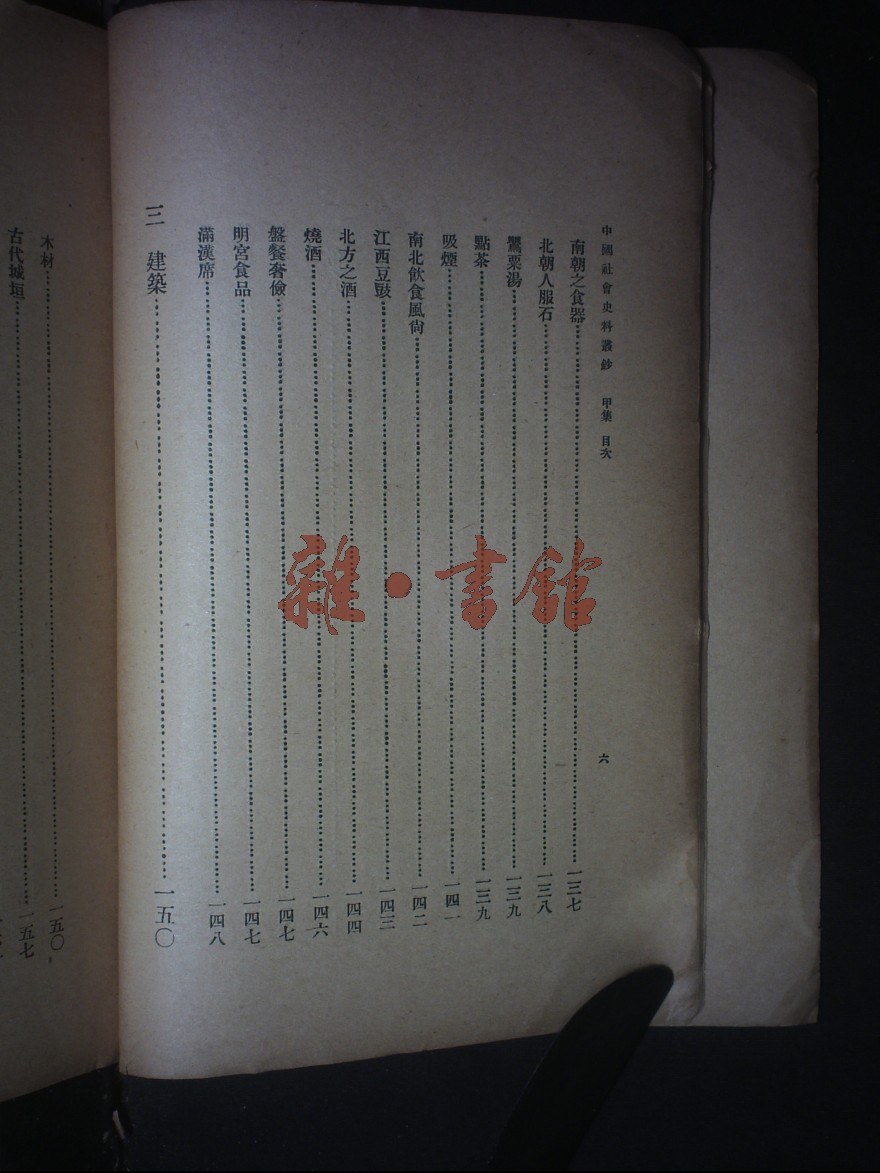 中國社會史料叢鈔　甲集　目次　六
南朝之食器……一三七
北朝人服石……一三八
鸎粟湯……一三九
點茶……一三九
吸煙……一四一
南北飲食風尙……一四二
江西豆豉……一四三
北方之酒……一四四
燒酒……一四六
盤餐奢儉……一四七
明宮食品……一四七
滿漢席……一四八
三　建築……一五〇
木材……一五〇
古代城垣……一五七
雜·書館